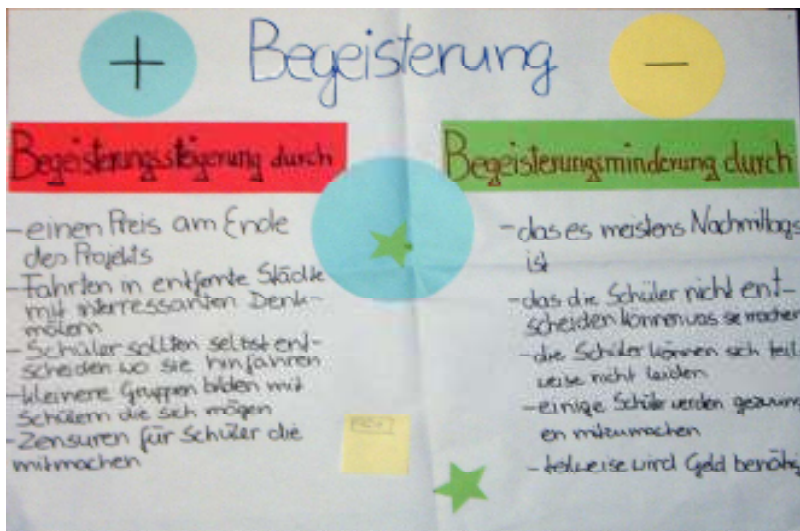 +
Begeisterung
−
Begeisterungssteigerung durch
-einen Preis am Ende
des Projekts
-Fahrten in entfernte Städte
mit interressanten Denk-
mälern
-Schüler sollten selbst ent-
scheiden wo sie hinfahren
-kleinere Gruppen bilden mit
Schülern die sich mögen
-Zensuren für Schüler die
mitmachen
Begeisterungsminderung durch
-das es meistens Nachmittags
ist
-das die Schüler nicht ent-
scheiden können was sie machen
-die Schüler können sich teil
weise nicht leiden
-einige Schüler werden gezwun
en mitzumachen
-teilweise wird Geld benötig